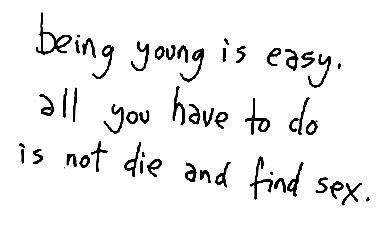 being young is easy.
all you have to do
is not die and find sex.